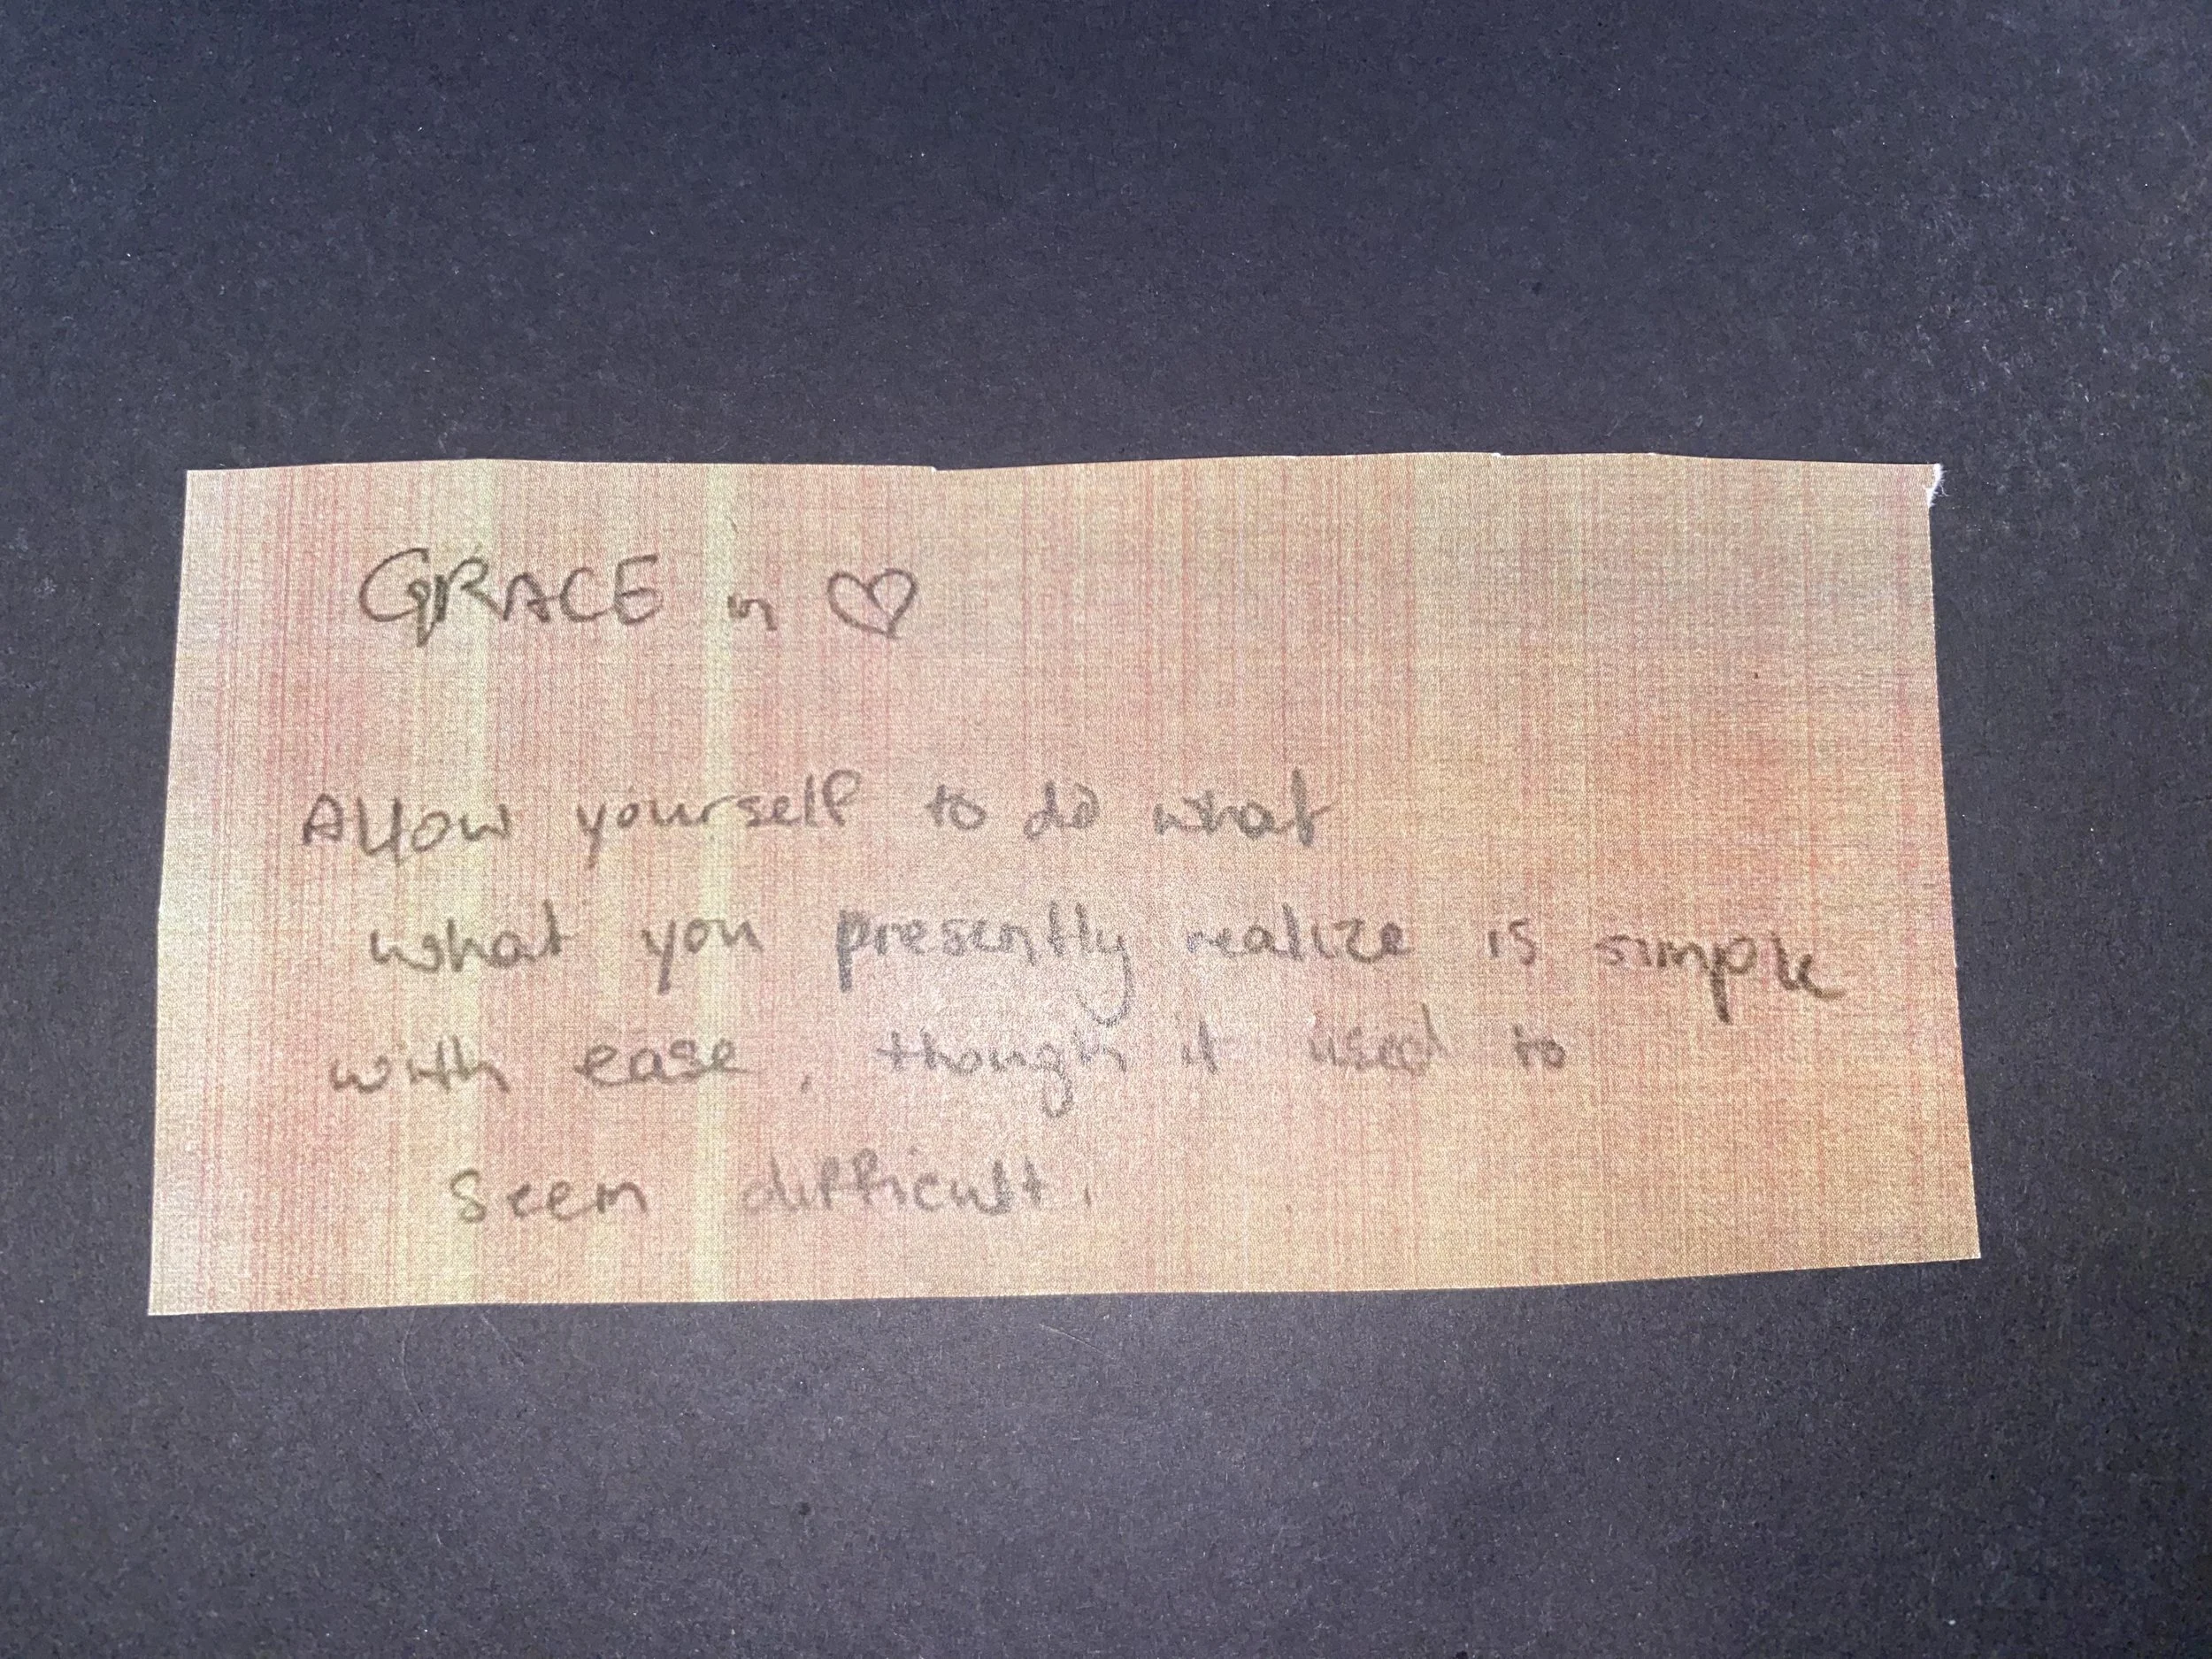 GRACE in ♡
Allow yourself to do what
what you presently realize is simple
with ease, though it used to
seem difficult.